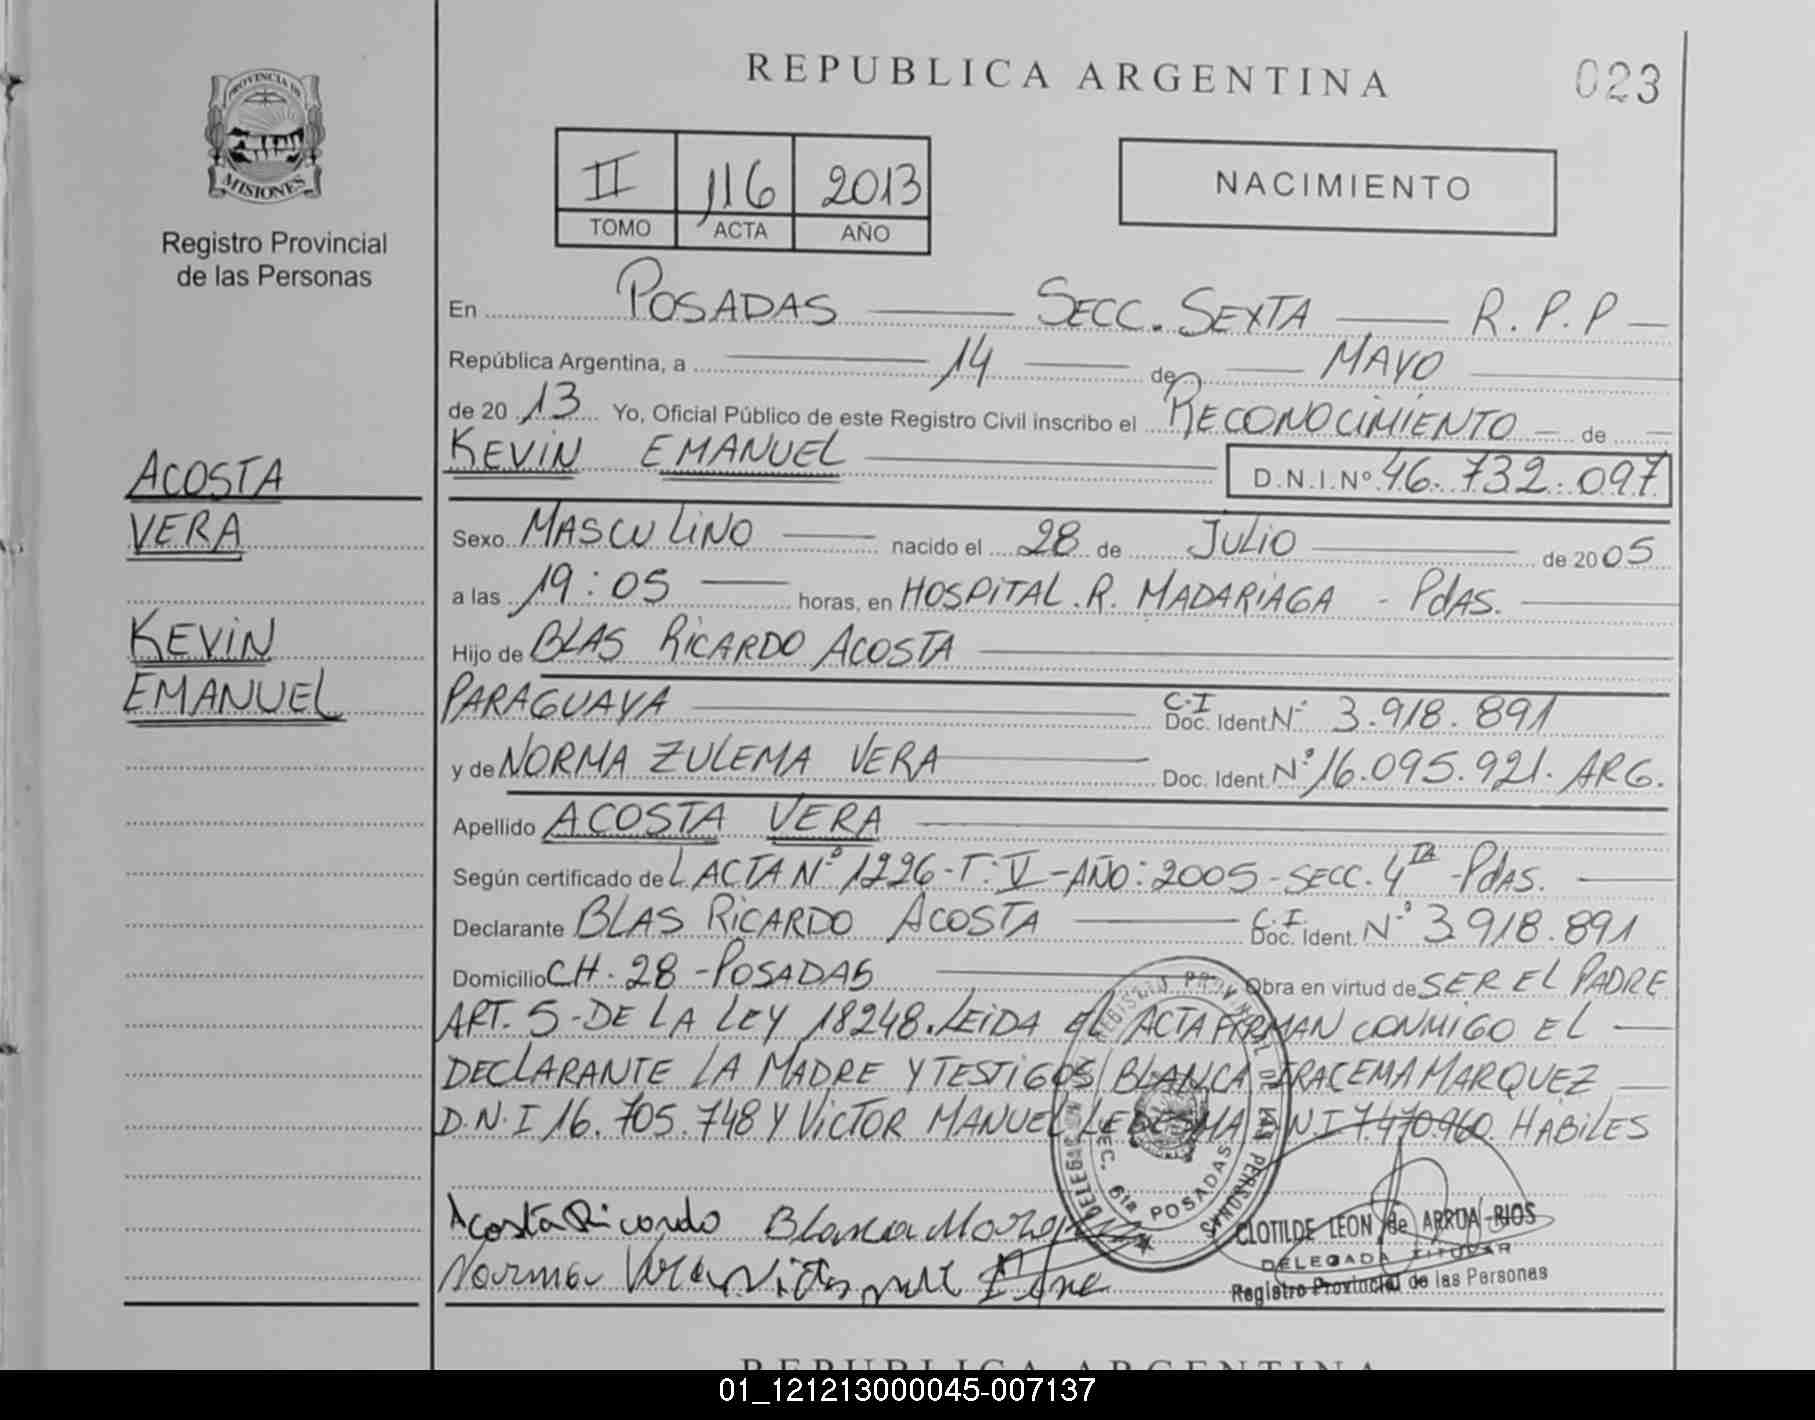 REPUBLICA ARGENTINA
023
PROVINCIA DE
MISIONES
Registro Provincial
de las Personas
II 116 2013
TOMO ACTA AÑO
NACIMIENTO
En POSADAS SECC. SEXTA R.P.P
República Argentina, a 14 de MAYO
de 2013 Yo, Oficial Público de este Registro Civil inscribo el RECONOCIMIENTO de
KEVIN EMANUEL D.N.I.Nº 46.732.097
ACOSTA
VERA
KEVIN
EMANUEL
Sexo MASCULINO nacido el 28 de JULIO de 2005
a las 19:05 horas, en HOSPITAL.R. MADARIAGA - PdAS.
Hijo de BLAS RICARDO ACOSTA
PARAGUAYA C.I Doc. Ident. Nº 3.918.891
y de NORMA ZULEMA VERA Doc. Ident. Nº 16.095.921. ARG.
Apellido ACOSTA VERA
Según certificado de L ACTA Nº 1226-T:V-AÑO:2005-SECC. 4TA-PdAS.
Declarante BLAS RICARDO ACOSTA C.I. Doc. Ident. Nº 3.918.891
Domicilio CH. 28 - POSADAS Obra en virtud de SER EL PADRE
ART. 5-DE LA LEY 18248. LEIDA EL ACTA FIRMAN CONMIGO EL
DECLARANTE LA MADRE Y TESTIGOS BLANCA IRACEMA MARQUEZ
D.N.I 16.705.748 Y VICTOR MANUEL LEDESMA D.N.I 7.470.960. HABILES
DELEGACION
REGISTRO PROVINCIAL DE LAS PERSONAS
SEC. 6ta POSADAS
Acosta Ricardo Blanca
Norma Vera
CLOTILDE LEON de ARRUA-RIOS
DELEGADA TITULAR
Registro Provincial de las Personas
REPUBLICA ARGENTINA
01_121213000045-007137